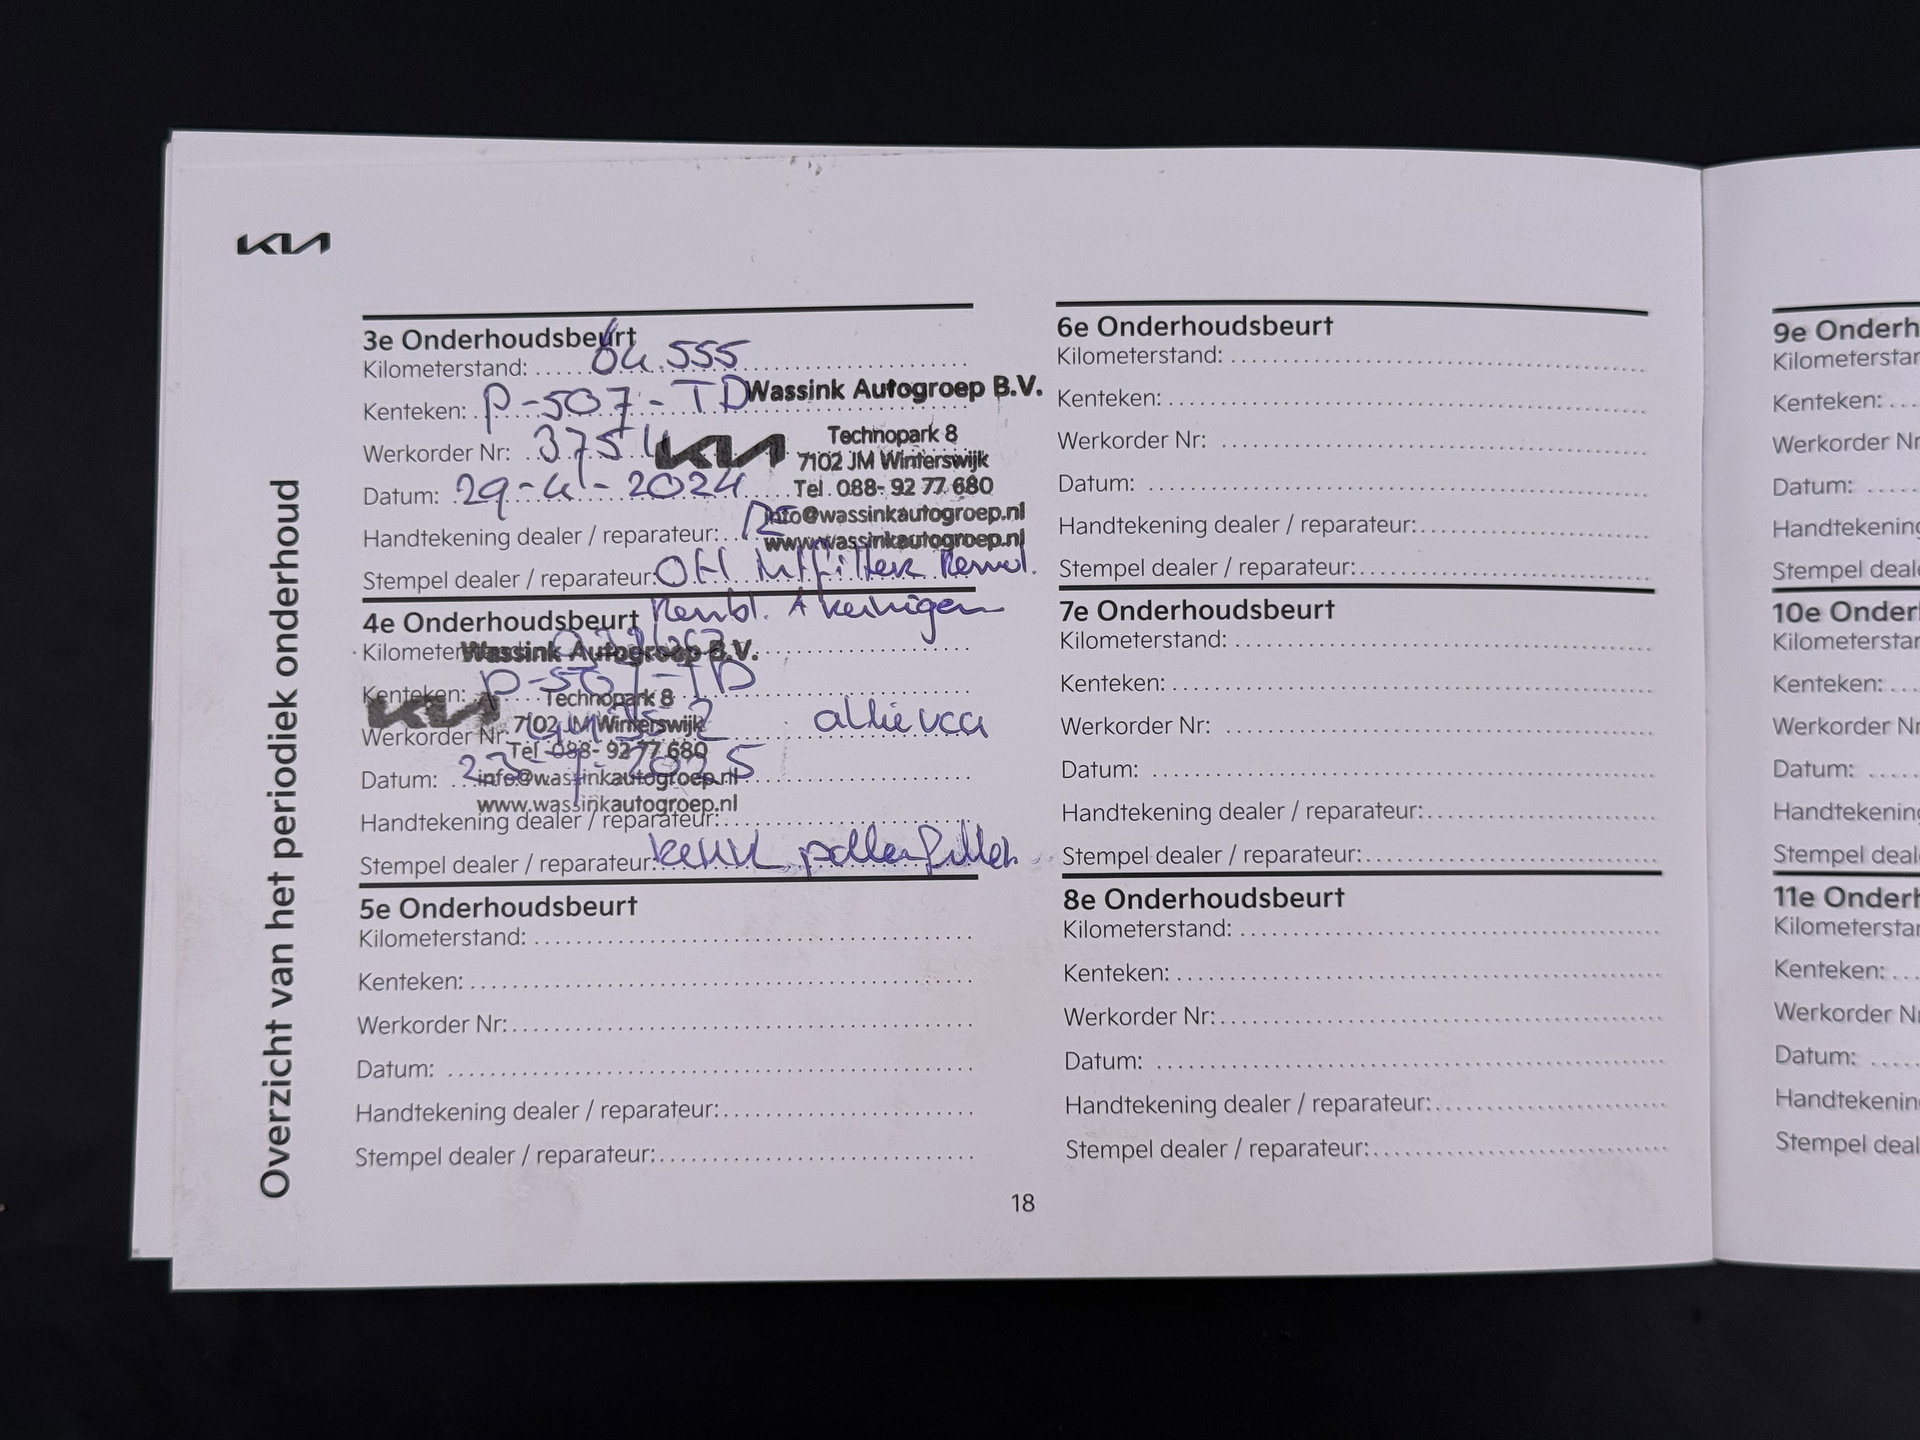 KIA
Overzicht van het periodiek onderhoud
3e Onderhoudsbeurt
Kilometerstand: 64.555
Kenteken: P-507-TD
Werkorder Nr: 3754
Datum: 29-4-2024
Handtekening dealer / reparateur:
Stempel dealer / reparateur:
Wassink Autogroep B.V.
KIA
Technopark 8
7102 JM Winterswijk
Tel. 088- 92 77 680
info@wassinkautogroep.nl
www.wassinkautogroep.nl
OH
4e Onderhoudsbeurt
Kilometer
Kenteken: P-507-TD
Werkorder Nr
Datum: 2025
Handtekening dealer / reparateur:
Stempel dealer / reparateur:
Wassink Autogroep B.V.
KIA
Technopark 8
7102 JM Winterswijk
Tel 088- 92 77 680
info@wassinkautogroep.nl
www.wassinkautogroep.nl
pollenfilter
5e Onderhoudsbeurt
Kilometerstand:
Kenteken:
Werkorder Nr:
Datum:
Handtekening dealer / reparateur:
Stempel dealer / reparateur:
6e Onderhoudsbeurt
Kilometerstand:
Kenteken:
Werkorder Nr:
Datum:
Handtekening dealer / reparateur:
Stempel dealer / reparateur:
7e Onderhoudsbeurt
Kilometerstand:
Kenteken:
Werkorder Nr:
Datum:
Handtekening dealer / reparateur:
Stempel dealer / reparateur:
8e Onderhoudsbeurt
Kilometerstand:
Kenteken:
Werkorder Nr:
Datum:
Handtekening dealer / reparateur:
Stempel dealer / reparateur:
18
9e Onderh
Kilometerstar
Kenteken:
Werkorder Nr
Datum:
Handtekening
Stempel deale
10e Onder
Kilometerstar
Kenteken:
Werkorder Nr
Datum:
Handtekening
Stempel deal
11e Onder
Kilometerstar
Kenteken:
Werkorder Nr
Datum:
Handtekenin
Stempel deal